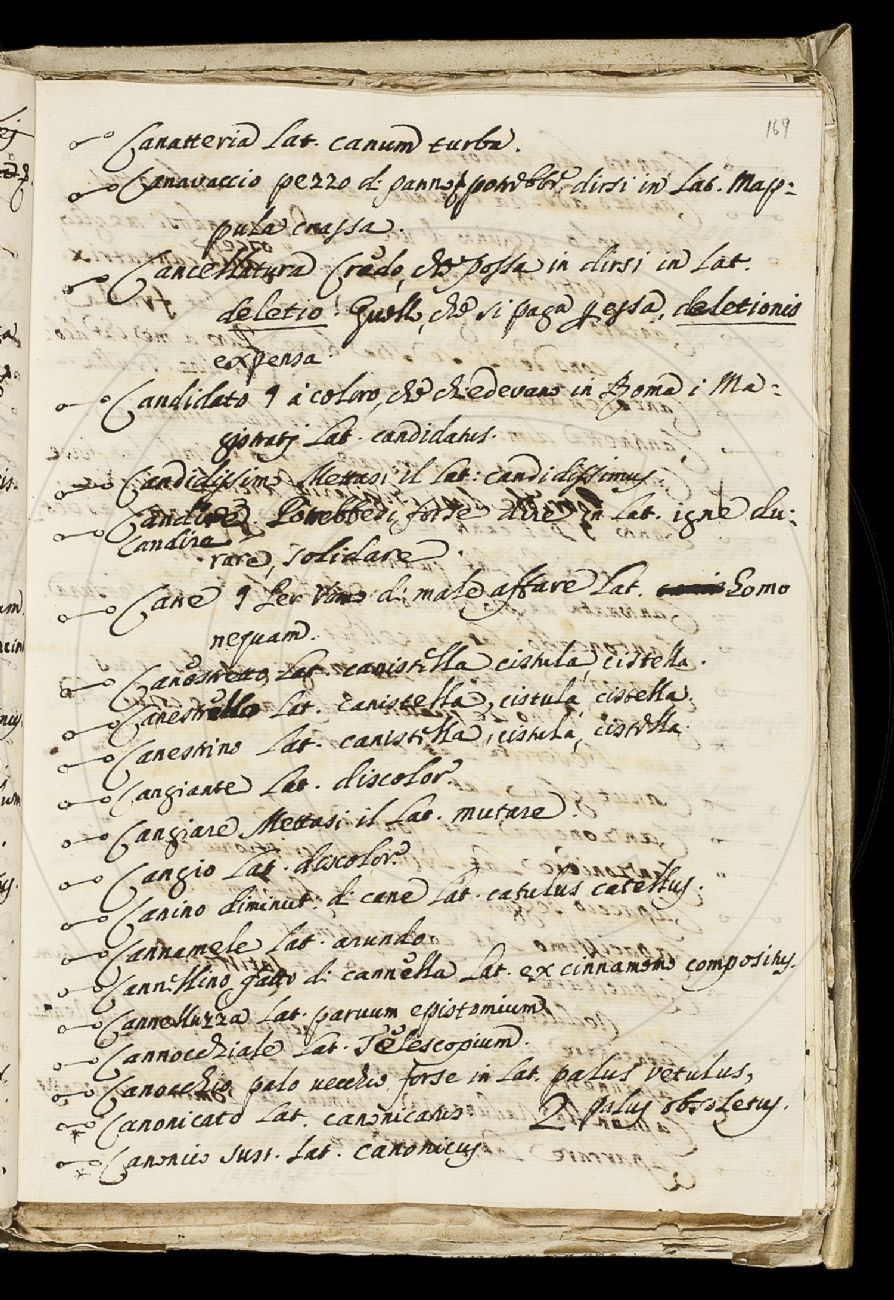 169
Canatteria Lat. canum turba.
Canavaccio pezzo di panno, potrebbe dirsi in Lat. Map=
pula crassa.
Cancellatura Credo, che possa in dirsi in Lat.
deletio. Quello, che si paga p essa, deletionis
expensa
Candidato 9 à coloro, che chiedevano in Roma i Ma=
gistratj Lat. candidatus.
Candidissimo Mettasi il Lat: candidissimus
Candire. Potrebbe di forse dire in Lat. igne du=
Candire
rare, solidare.
Cane 9 Per Vomo di male affare Lat. homo
nequam.
Canestretto Lat. canistella cistula, cistella.
Canestrello Lat. canistella, cistula, cistella.
Canestrino Lat. canistella, cistula, cistella.
Cangiante Lat. discolor
Cangiare Mettasi il Lat. mutare.
Cangio Lat. discolor.
Canino diminut. di cane Lat. catulus catellus.
Cannamele Lat. arundo
Cannellino fatto di cannella Lat. ex cinnamomo compositus.
Cannelluzza Lat. paruum epistomium
Cannocchiale Lat. Telescopium.
Canocchio, palo vecchio forse in Lat. palus vetulus,
palus obsoletus.
Canonicato Lat. canonicatus.
Canonico sust. Lat. canonicus